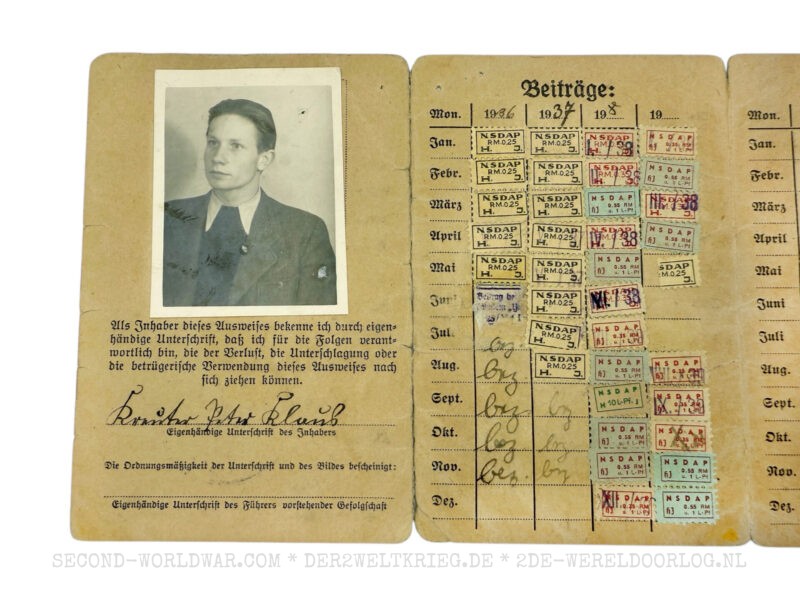 Als Inhaber dieses Ausweises bekenne ich durch eigen-
händige Unterschrift, daß ich für die Folgen verant-
wortlich bin, die der Verlust, die Unterschlagung oder
die betrügerische Verwendung dieses Ausweises nach
sich ziehen können.
Kreuter Peter Klaus
Eigenhändige Unterschrift des Inhabers
Die Ordnungsmäßigkeit der Unterschrift und des Bildes bescheinigt:
Eigenhändige Unterschrift des Führers vorstehender Gefolgschaft
Beiträge:
Mon. 1936 1937 198 19
Jan. NSDAP RM.0,25 H. J. NSDAP RM.0,25 H. J. I./38 NSDAP 0.55 RM u. 1 L-Pf
Febr. NSDAP RM.0,25 H. J. NSDAP RM.0,25 H. J. NSDAP 0.55 RM u. 1 L-Pf
März NSDAP RM.0,25 H. J. NSDAP RM.0,25 H. J. NSDAP HJ 0.55 RM u. 1 L-Pf III./38
April NSDAP RM.0,25 H. J. NSDAP RM.0,25 H. J. IV./38 NSDAP HJ 0.55 RM u. 1 L-Pf
Mai NSDAP RM.0,25 H. J. NSDAP RM.0,25 H. J. NSDAP HJ 0.55 RM u. 1 L-Pf SDAP RM.0,25
Juni NSDAP RM.0,25 H. J. /38
Jul. bez NSDAP RM.0,25 H. J. NSDAP HJ 0.55 RM u. 1 L-Pf
Aug. bez NSDAP RM.0,25 H. J. NSDAP HJ 0.55 RM u. 1 L-Pf
Sept. bez bz NSDAP NSDAP
Okt. bez bz NSDAP HJ 0.55 RM u. 1 L-Pf NSDAP
Nov. bez. bz NSDAP HJ 0.55 RM u. 1 L-Pf NSDAP HJ 0.55 RM u. 1 L-Pf
Dez. XII NSDAP 0.55 RM u. 1 L-Pf NSDAP HJ 0.55 RM u. 1 L-Pf
Mon.
Jan.
Febr.
März
April
Mai
Juni
Juli
Aug.
Sept.
Okt.
Nov.
Dez.
SECOND-WORLDWAR.COM * DER2WELTKRIEG.DE * 2DE-WERELDOORLOG.NL